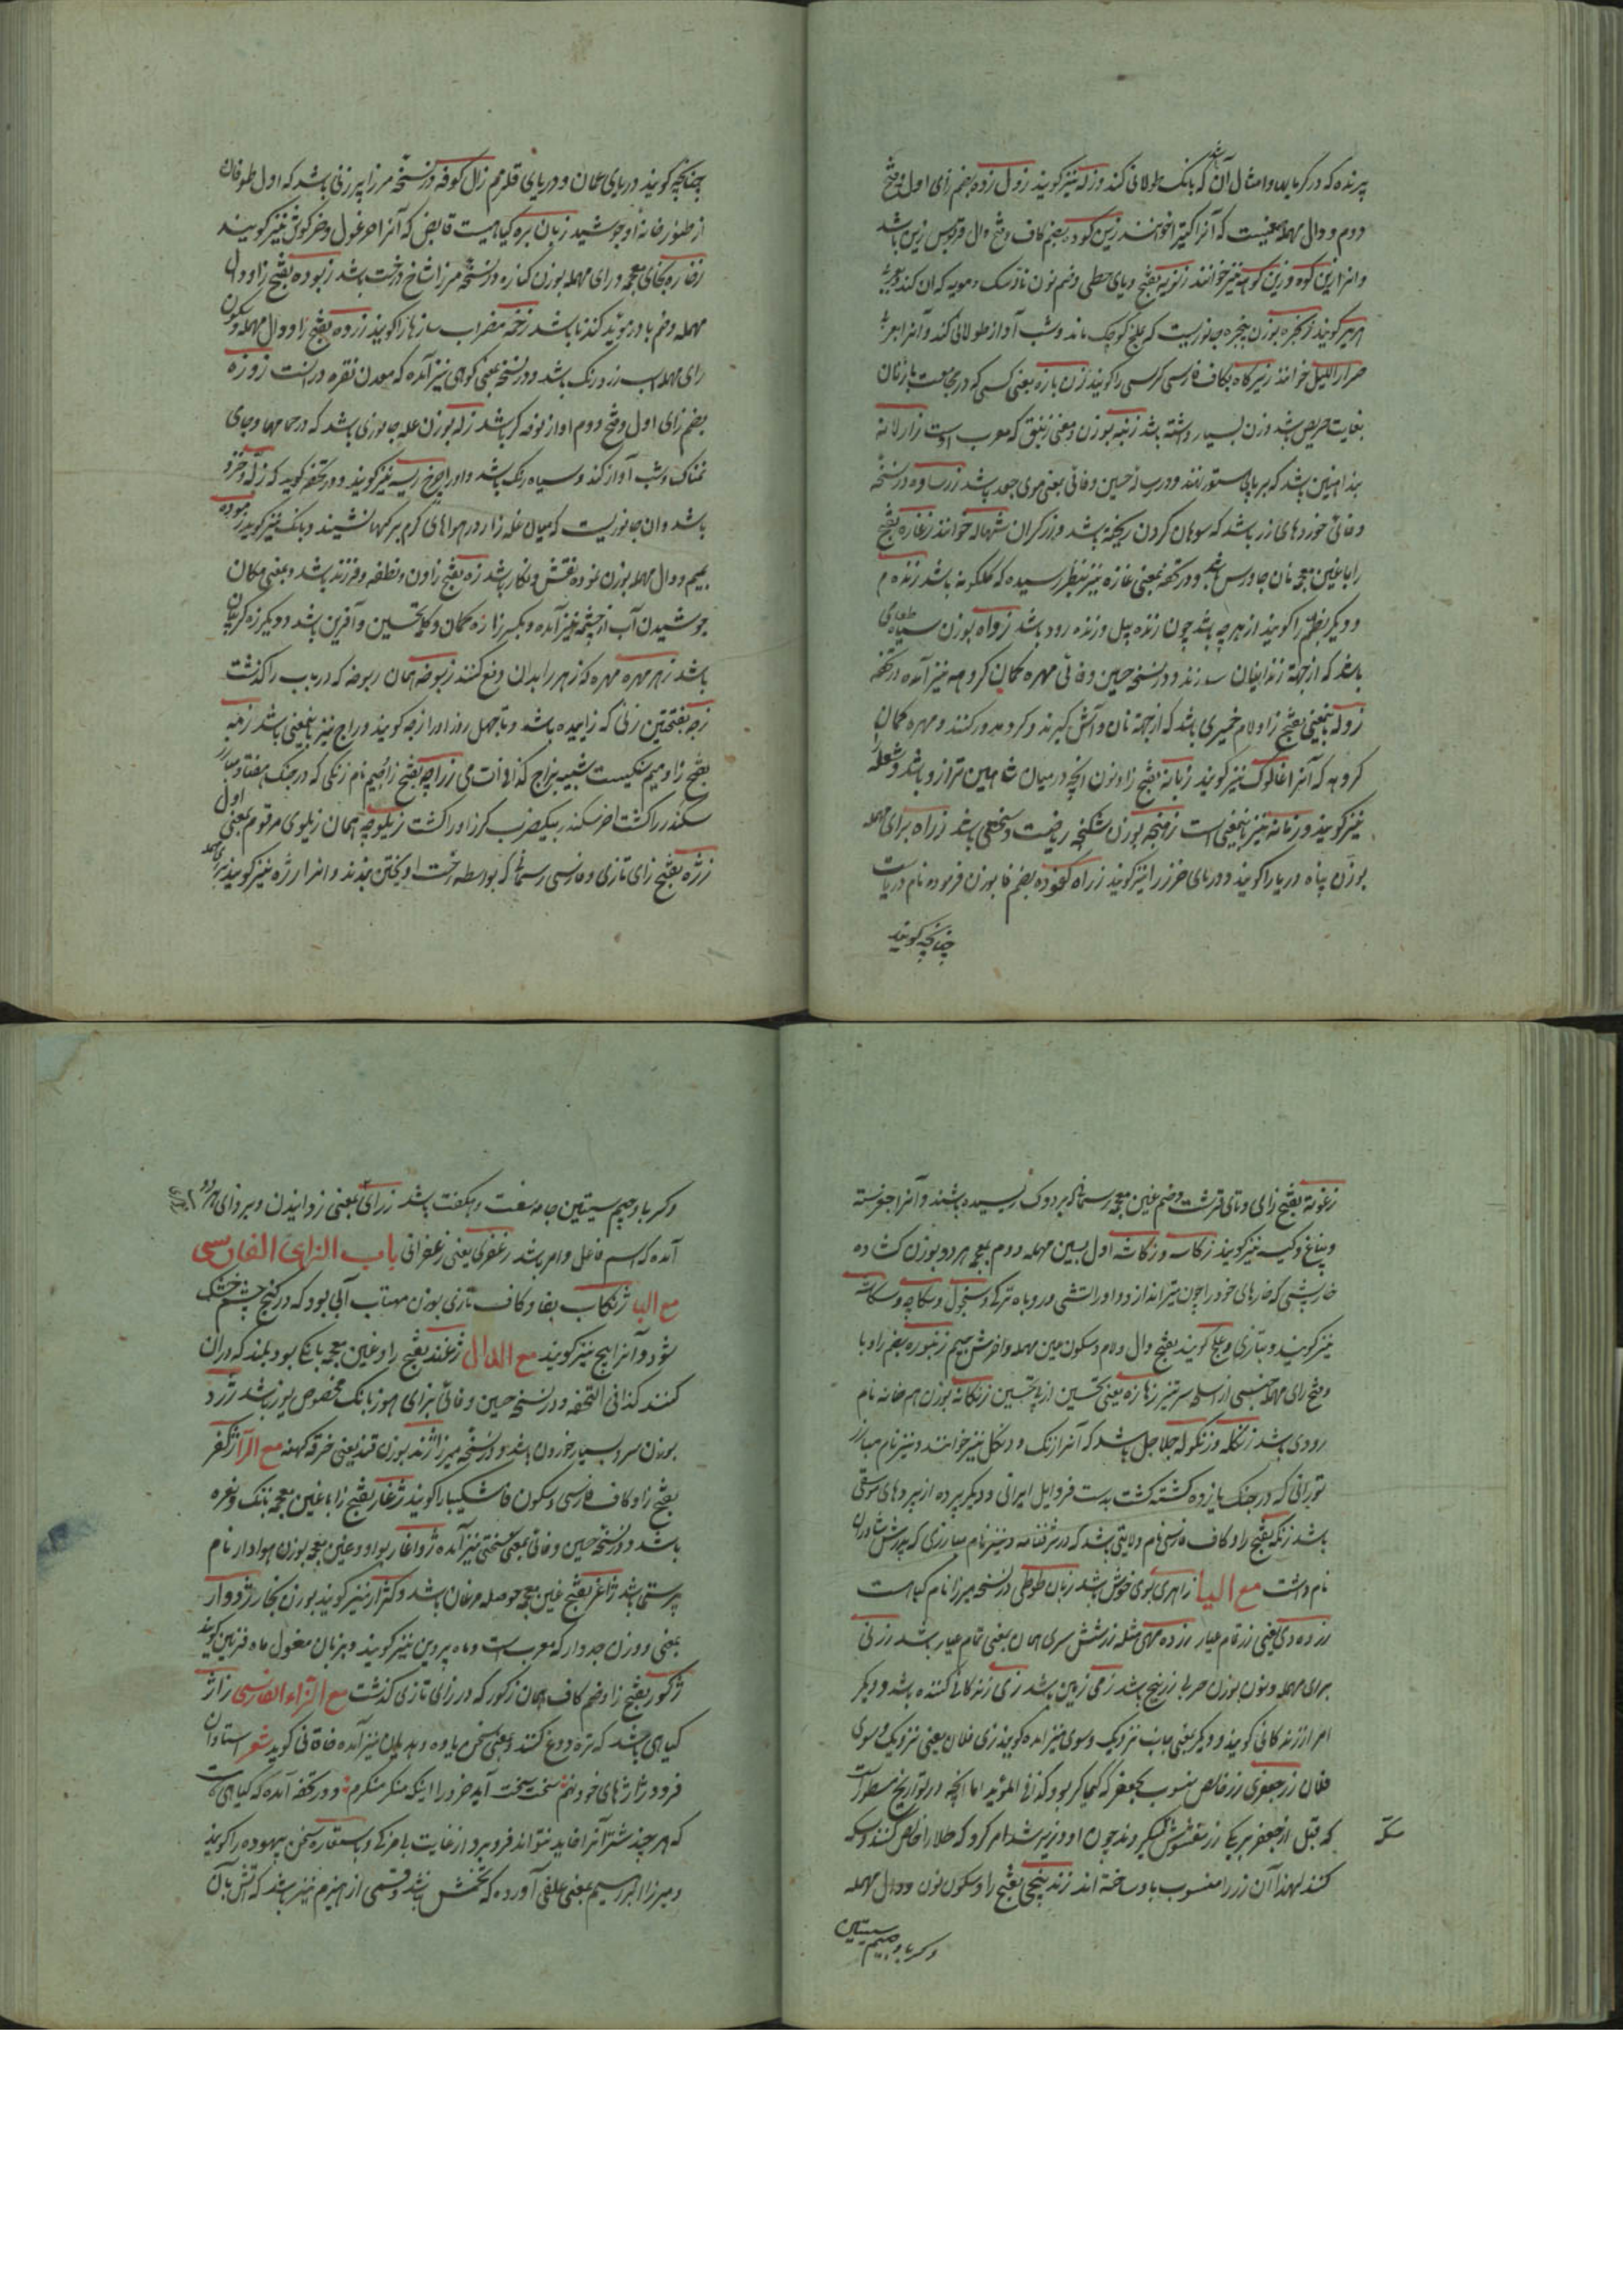 پرنده که در کرمابها و امثال آن باشد که بانک طولانی کند و زله نیز کویند زول زده بضم زای اول و فتح
دوم و دال مهمله بمعنیست که آنرا کتیرا خوانند زین کوده بضم کاف و فتح دال قربوس زین باشد
و انرا زین کوه و زین کوهه نیز خوانند زنویه بفتح و یای حطی و ضم نون ناله سک و مویه که ان کند و بعربی
هریر کویند زنجره بوزن پنجره جانوریست که بملخ کوچک ماند و شب آواز طولانی کند و آنرا بعربی
صرار اللیل خوانند زیرکاه بکاف فارسی کرسی را کویند زن باره یعنی کسی که در مجامعت با زنان
بغایت حریص باشد و زن بسیار داشته باشد زنبه بوزن و معنی زنبق که معرب اوست زارلانه
بند اهنین باشد که بر پای ستور نهند و در نسخه حسین وفائی بمعنی موی جعد باشد زرساوه در نسخه
وفائی خوردهای زر باشد که سوهان کردن ریخته باشد و زرکران شهاله خوانند زغاره بفتح
زا با غین معجمه نان جاورس باشد و در تحفه بمعنی غازه نیز بنظر رسیده که کلکونه باشد زنده م
و دیکر عظیم را کویند از هر چه باشد چون زنده پیل و زنده رود باشد زواه بوزن سیاه طعامی
باشد که از جهة زندانیان سازند و در نسخه حسین وفائی مهره کمان کروهه نیز آمده در تحفه
زوله باینمعنی بفتح زا و لام خمیری باشد که از جهة نان و آش کیرند و کرد و مدور کنند و مهره کمان
کروهه که آنرا غالوک نیز کویند زبانه بفتح زا و نون انچه در میان شاهین ترازو باشد و شعله را
نیز کویند و زمانه نیز باینمعنی است زمنجه بوزن شکنجه ریاضت و سختی باشد زراه برای مهمله
بوزن پناه دریا را کویند و دریای خزر را نیز کویند زراه کفوده بضم فا بوزن فرموده نام دریاست
چنانچه کویند
چنانچه کویند دریای عمان و دریای قلزم زال کوفه در نسخه میرزا پیر زنی باشد که اول طوفان
از تنور خانه او جوشید زبان بره کیاهیست قابض که آنرا خرغول و خرکوش نیز کویند
زغاره بخای معجمه و رای مهمله بوزن کناره در نسخه میرزا شاخ درخت باشد زبوده بفتح زا و دال
مهمله و ضم با در موید کندنا باشد زخمه مضراب سازها را کویند زرده بفتح زا و دال مهمله و سکون
رای مهمله اسب زرد رنک باشد و در نسخه بمعنی کوهی نیز آمده که معدن نقره در انست زوزه
بضم زای اول و فتح دوم اواز نوحه کر باشد زله بوزن غله جانوری باشد که در حمامها و جای
نمناک و شب آواز کند و سیاه رنک باشد و اورا چرخ ریسه نیز کویند و در تحفه کوید که زله و خزو
باشد و ان جانوریست که میان غله زار و در هواهای کرم بر کیها نشیند و بانک نیز کویند زموده
بمیم و دال مهمله بوزن نموده نقش و نکار باشد زه بفتح زا ون و نطفه و فرزند باشد و بمعنی مکان
جوشیدن آب از چشمه نیز آمده و بکسر زا زه کمان و کلمه تحسین و آفرین باشد و دیکر زه کریبان
باشد زهر مهره مهره که زهر را بدان دفع کنند زیوضه همان ریوضه که در باب را کذشت
زجه بفتحتین زنی که زاییده باشد و تا چهل روز او را زجه کویند و زاج نیز باینمعنی باشد زمه
بفتح زا و میم سنکیست شبیه بزاج کذا فی الادات می زراچه بفتح زا و جیم نام زنکی که در جنک هفتاد مبارز
سکندر را کشت اخر سکندر بیکضرب کرز او را کشت زیلوچه همان زیلوی مرقوم بمعنی اول
زرژه بفتح زای تازی و فارسی رسمانی که بواسطه رخت اویختن بندند و انرا رژه نیز کویند برای مهمله
زغوته بفتح زای و تای قرشت و ضم غین معجمه ریسمانی که بر دوک رسیده باشند و آنرا جغرسته
و پناغ و کسه نیز کویند زکاسه و زکاشه اول بسین مهمله دوم بمعجمه هر دو بوزن کشاده
خارپشتی که خارهای خود را چون تیر اندازد و او را تشی و روباه ترکی و سنجول و سکاچه و سکاسه
نیز کویند و بتازی دلدل کویند بفتح دال و لام و سکون عین مهمله و اخرش جیم زنبوره بضم زا و با
و فتح رای مهمله جنسی از اسلحه سر تیز زها زه یعنی تحسین از پی تحسین زنکانه بوزن هم خانه نام
رودی باشد زنکله و زنکوله جلاجل باشد که آنرا زنک و دنکل نیز خوانند و نیز نام مبارز
تورانی که در جنک یازده کشته کشت بدست فروایل ایرانی و دیکر پرده از پردهای موسیقی
باشد زنکه بفتح زا و کاف فارسی نام ولایتی باشد که در شرفنامه و نیز نام مبارزی که پدرش شاوران
نام داشت مع الیا زاهری بوی خوش باشد زبان طوطی در نسخه میرزا نام کیاهست
زر ده دهی یعنی زر تمام عیار زر ده مهی مثله زر شش سری همان بمعنی تمام عیار باشد زرنی
برای مهمله و نون بوزن حربا زرنیخ باشد زمی زمین باشد زی زندکانی کننده باشد و دیکر
امر از زندکانی کویند و دیکر بمعنی جانب نزدیک و سوی نیز امده کویند زی فلان یعنی نزدیک و سوی
فلان زر جعفری زر خالص منسوب بجعفر که کیمیاکر بود کذا فی المؤید اما انچه در تواریخ مسطور است
که قبل از جعفر برمکی زر مغشوش سکه میکردند چون او وزیر شد امر کرد که طلا را خالص کنند و سکه
سکه
کنند لهذا آن زر را منسوب باو ساخته اند زندپیچی بفتح زا و سکون نون و دال مهمله
و کسر با و جیم سیتین
و کسر با و جیم سیتین جامه سفت و هنکفت باشد زدای بمعنی زدائیدن و بر دو ای
آمده که اسم فاعل و امر باشد زعفری یعنی زعفرانی باب الزای الفارسی
مع البا ژنکاب بفا و کاف تازی بوزن مهتاب آبی بود که در کنج چشم خشک
شود و آنرا پیخ نیز کویند مع الدال ژغند بفتح زا و غین معجمه بانکی بود بلند که ددان
کنند کذا فی التحفه و در نسخه حسین وفائی بزای هوز بانک مخصوص یوز باشد ژرد
بوزن سرد بسیار خوردن باشد و در نسخه میرزا ژند بوزن قند یعنی خرقه کهنه مع الرا ژکفر
بفتح زا و کاف فارسی و سکون فا شکیبا را کویند ژغار بفتح زا با غین معجمه بانک و نعره
باشد و در نسخه حسین وفائی بمعنی سختی نیز آمده ژواغار بواو و غین معجمه بوزن هوادار نام
پرستی باشد ژاغر بفتح غین معجمه حوصله مرغان باشد و کژار نیز کویند بوزن بخار ژدوار
بمعنی و وزن جدوار که معرب است و ماه پروین نیز کویند و بزبان مغول ماه فرفین کویند
ژکور بفتح زا و ضم کاف همان زکور که در زای تازی کذشت مع الزاء الفارسی ژاژ
کیاهی باشد که تره دوغ کنند و بمعنی سخن بیفایده و هذیان نیز آمده خاقانی کوید شعر استادان
فرود ژاژهای خود نهم سخت سخت آید خرد را اینکه منکر منکرم و در تحفه آمده که کیاهیست
که هر چند شتر آنرا خاید نتواند فرو برد از غایت بی مزکی و باستعاره سخن بیهوده را کویند
و میرزا ابراهیم بمعنی علفی آورده که تخمش باشد و قسمی از هیزم نیز باشد که آتش بآن